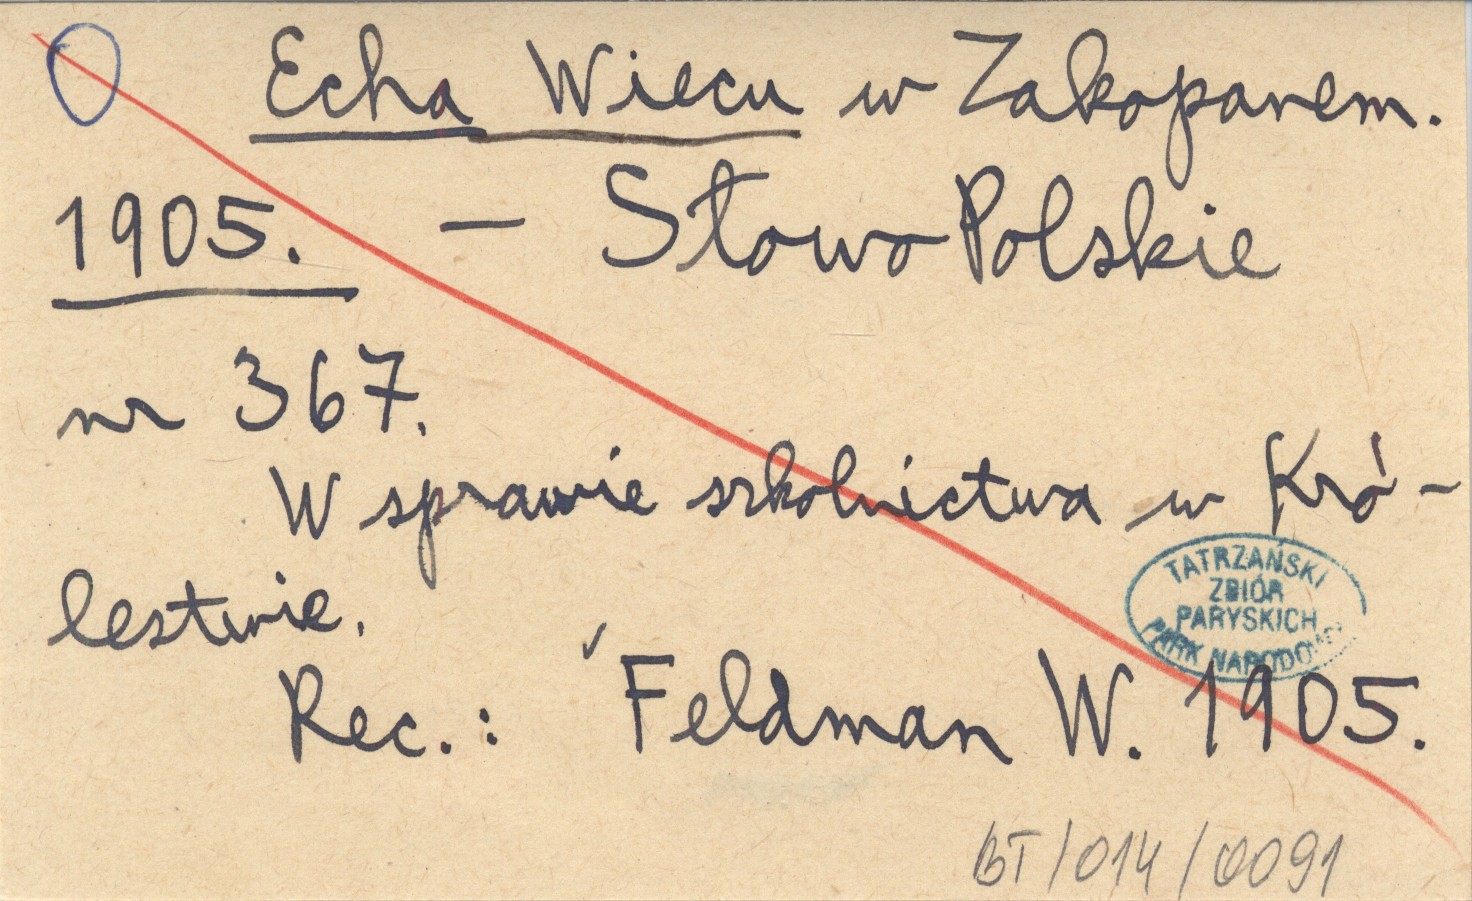 Echa Wiecu w Zakopanem.
1905. – Słowo Polskie
nr 367.
W sprawie szkolnictwa w Kró-
lestwie.
TATRZAŃSKI
ZBIÓR
PARYSKICH
PARK NARODOWY
Rec.: Feldman W. 1905.
BT/014/0091